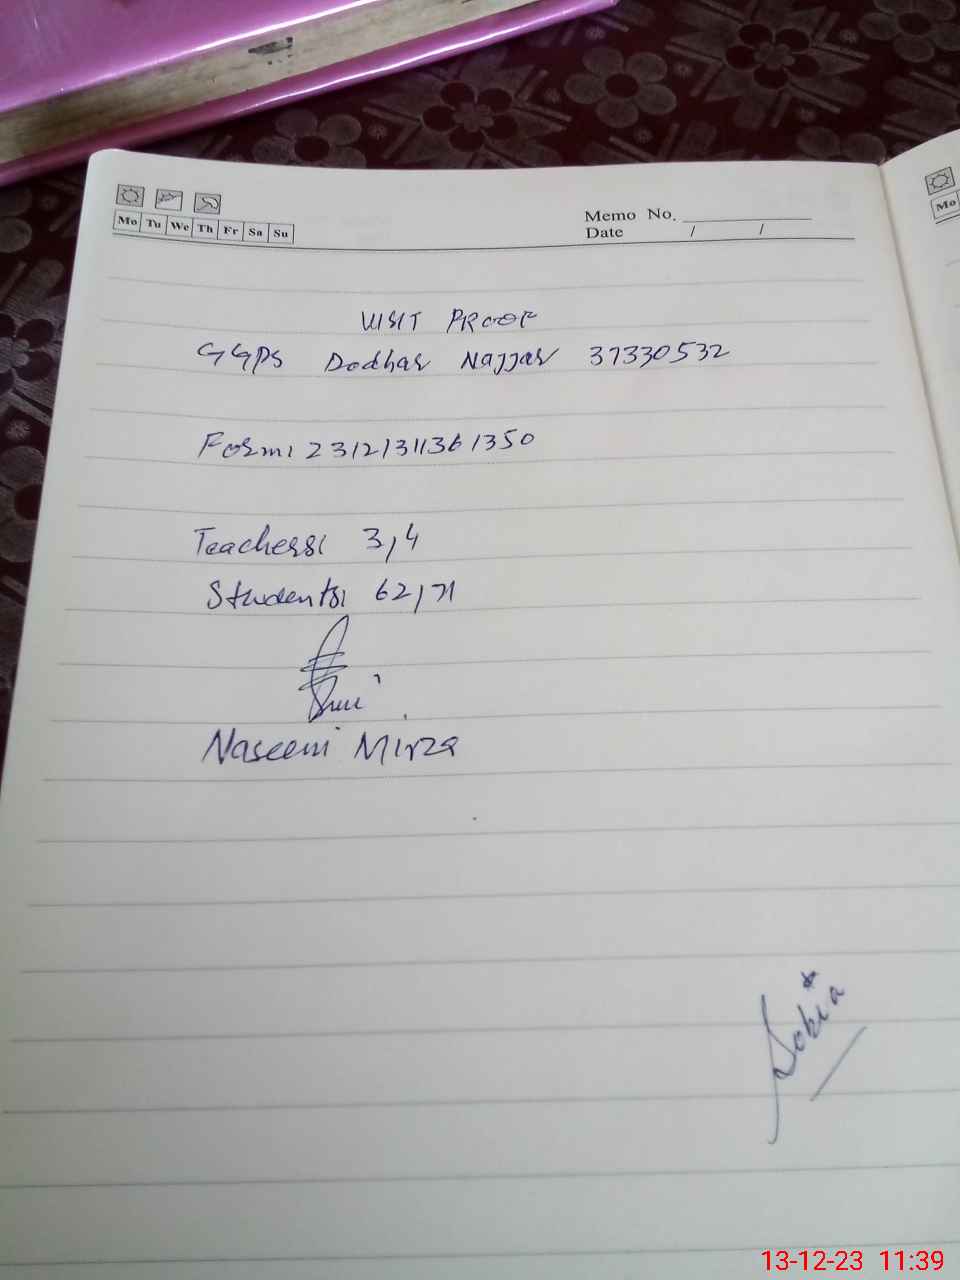 Mo Tu We Th Fr Sa Su
Memo No.
Date / /
Mo
VISIT PROOF
GGPS Dodhar Najjar 37330532
Form: 23121311361350
Teachers: 3,4
Students: 62,71
Naseem Mirza
13-12-23 11:39